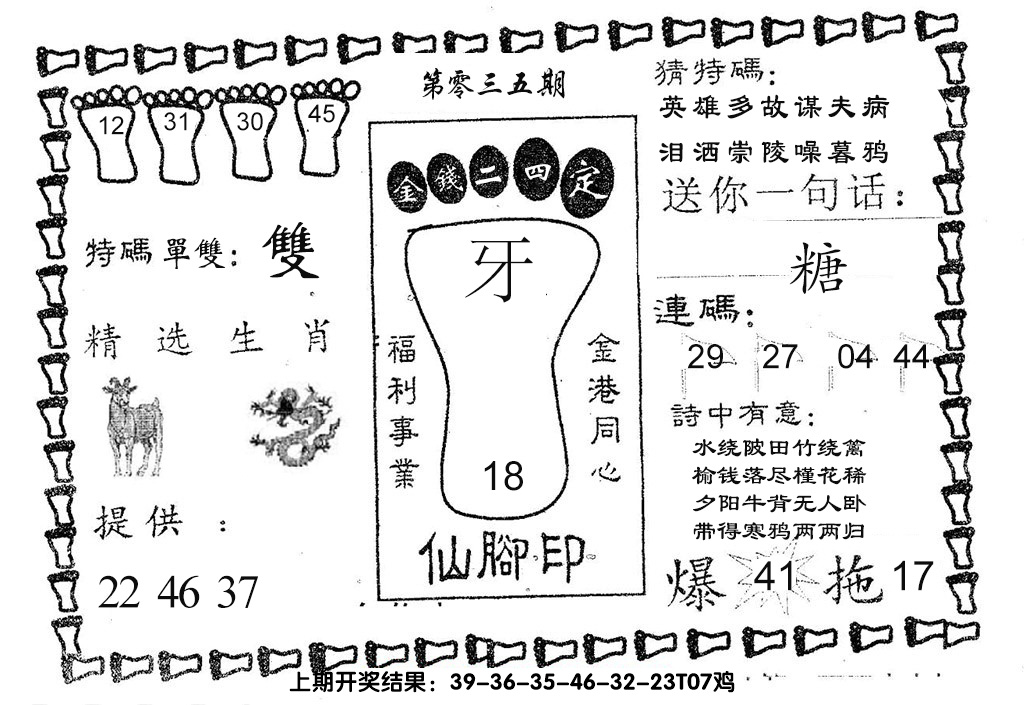 第零三五期
12 31 30 45
特碼單雙：雙
精选生肖
提供：
22 46 37
金錢二四定
牙
福利事業
金港同心
18
仙腳印
猜特碼：
英雄多故谋夫病
泪洒崇陵噪暮鸦
送你一句话：
糖
連碼：
29 27 04 44
詩中有意：
水绕陂田竹绕篱
榆钱落尽槿花稀
夕阳牛背无人卧
带得寒鸦两两归
爆 41 拖 17
上期开奖结果：39-36-35-46-32-23T07鸡